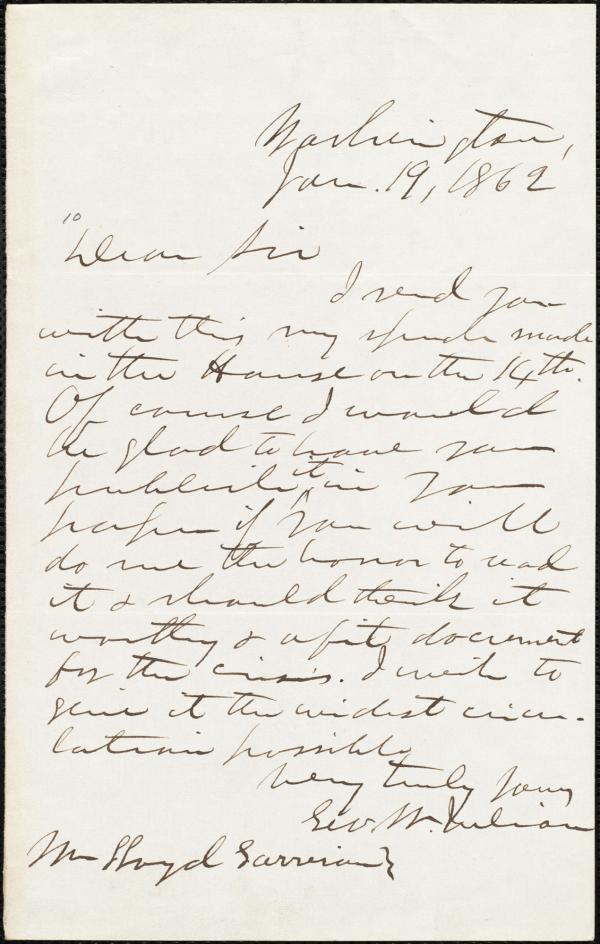 Washington,
Jan. 19, 1862
10
Dear Sir
I send you
with this my speech made
in the House on the 14th.
Of course I would
be glad to have you
publish it in your
paper if you will
do me the honor to read
it & should think it
worthy & a fit document
for the crisis. I wish to
give it the widest circu-
lation possible
Very truly yours
Geo. W. Julian
Wm Lloyd Garrison}